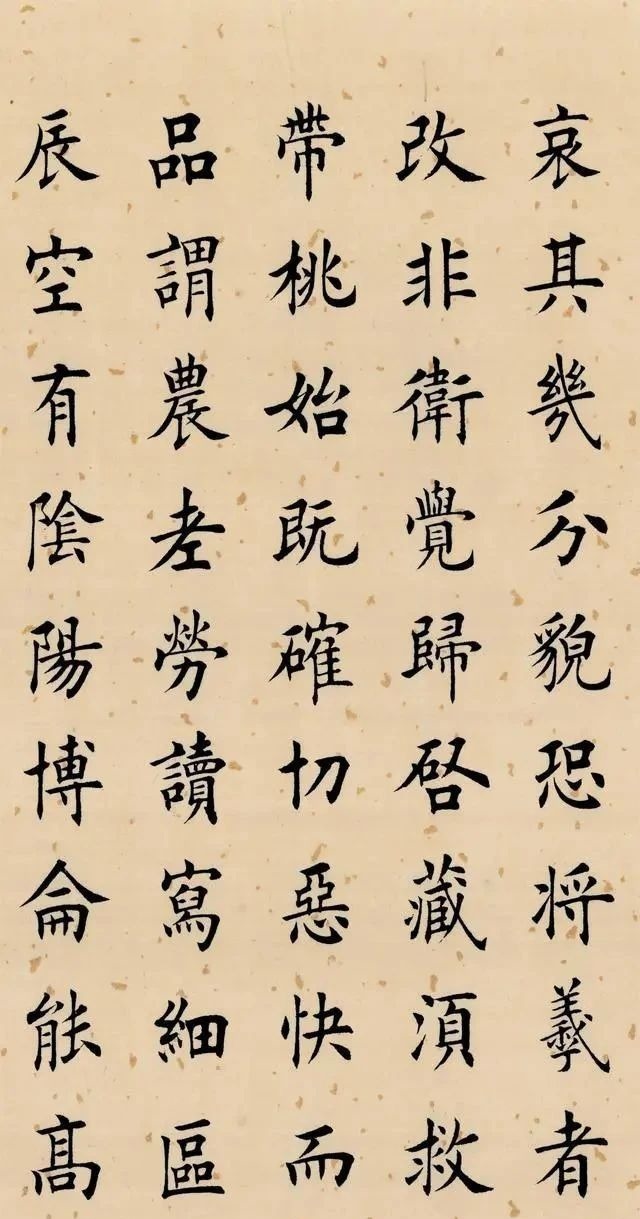 哀其幾分貌恐將羲者
改非衛覺歸啓藏須救
帶桃始既確切惡快而
品謂農差勞讀寫細區
辰空有陰陽博侖能高